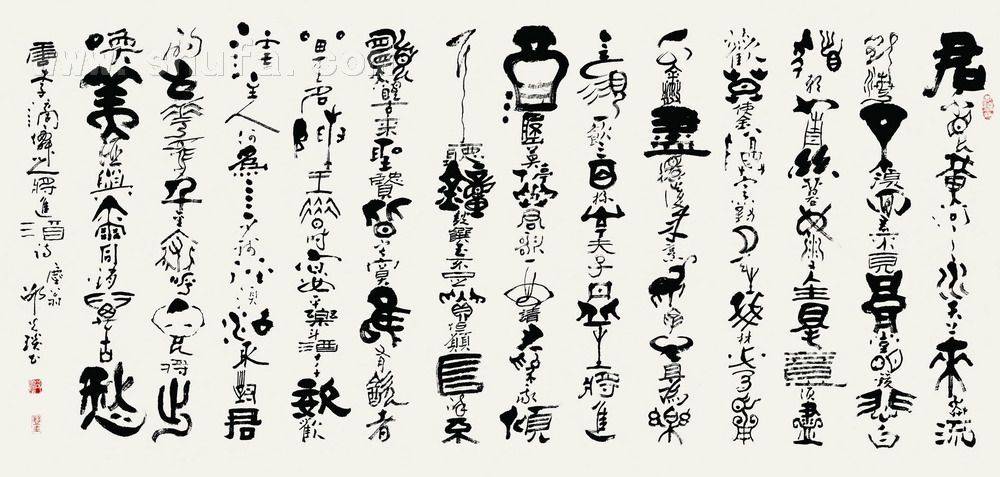 君不見黃河之水天上來奔流
到海不復回君不見高堂明鏡悲白
髮朝如青絲暮成雪人生得意須盡
歡莫使金樽空對月天生我材必有用
千金散盡還復來烹羊宰牛且為樂
會須一飲三百杯岑夫子丹丘生將進
酒杯莫停與君歌一曲請君為我傾
耳聽鐘鼓饌玉不足貴但願長醉不
復醒古來聖賢皆寂寞惟有飲者
留其名陳王昔時宴平樂斗酒十千恣歡
謔主人何為言少錢徑須沽取對君
酌五花馬千金裘呼兒將出
換美酒與爾同銷萬古愁
書李謫仙之將進酒詩